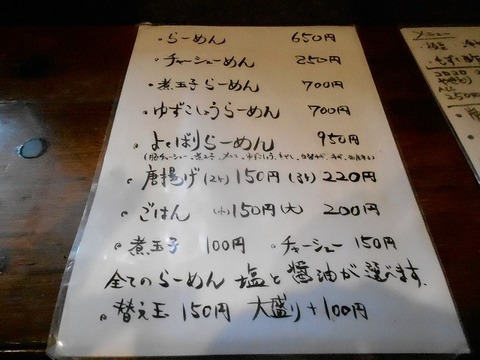 ・らーめん 650円
・チャーシューめん 850円
・煮玉子らーめん 700円
・ゆずこしょうらーめん 700円
・よくばりらーめん 950円
・唐揚げ(2ケ)150円(3ケ)220円
・ごはん (小)150円(大) 200円
・煮玉子 100円 ・チャーシュー 150円
全てのらーめん 塩と醤油が選べます。
・替え玉 150円 大盛り+100円
メニュー